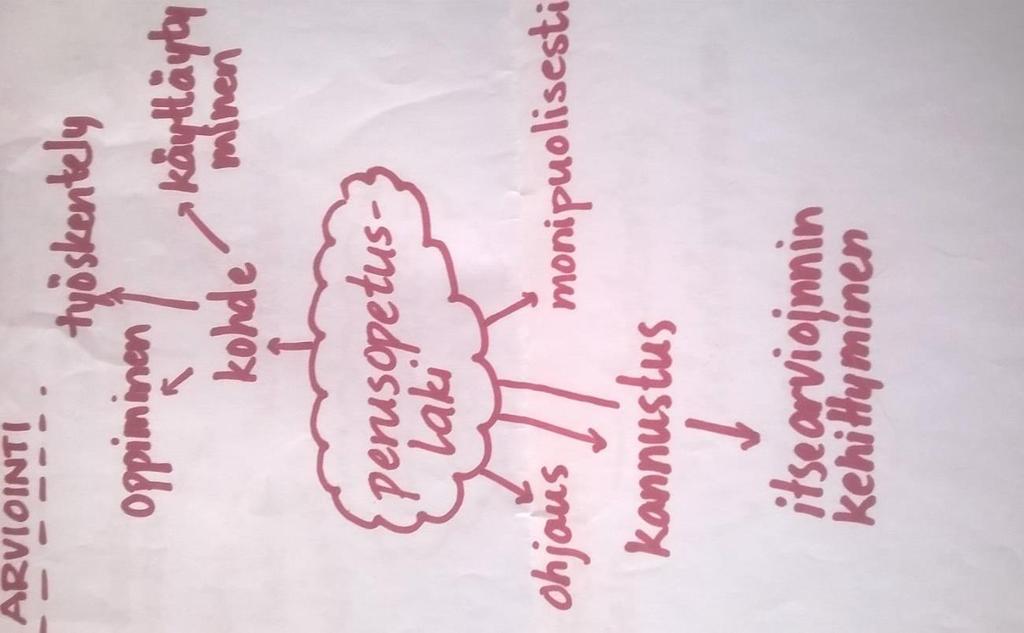 ARVIOINTI
työskentely
oppiminen
käyttäyty
minen
kohde
perusopetus-
laki
ohjaus
monipuolisesti
kannustus
itsearvioinnin
kehittyminen